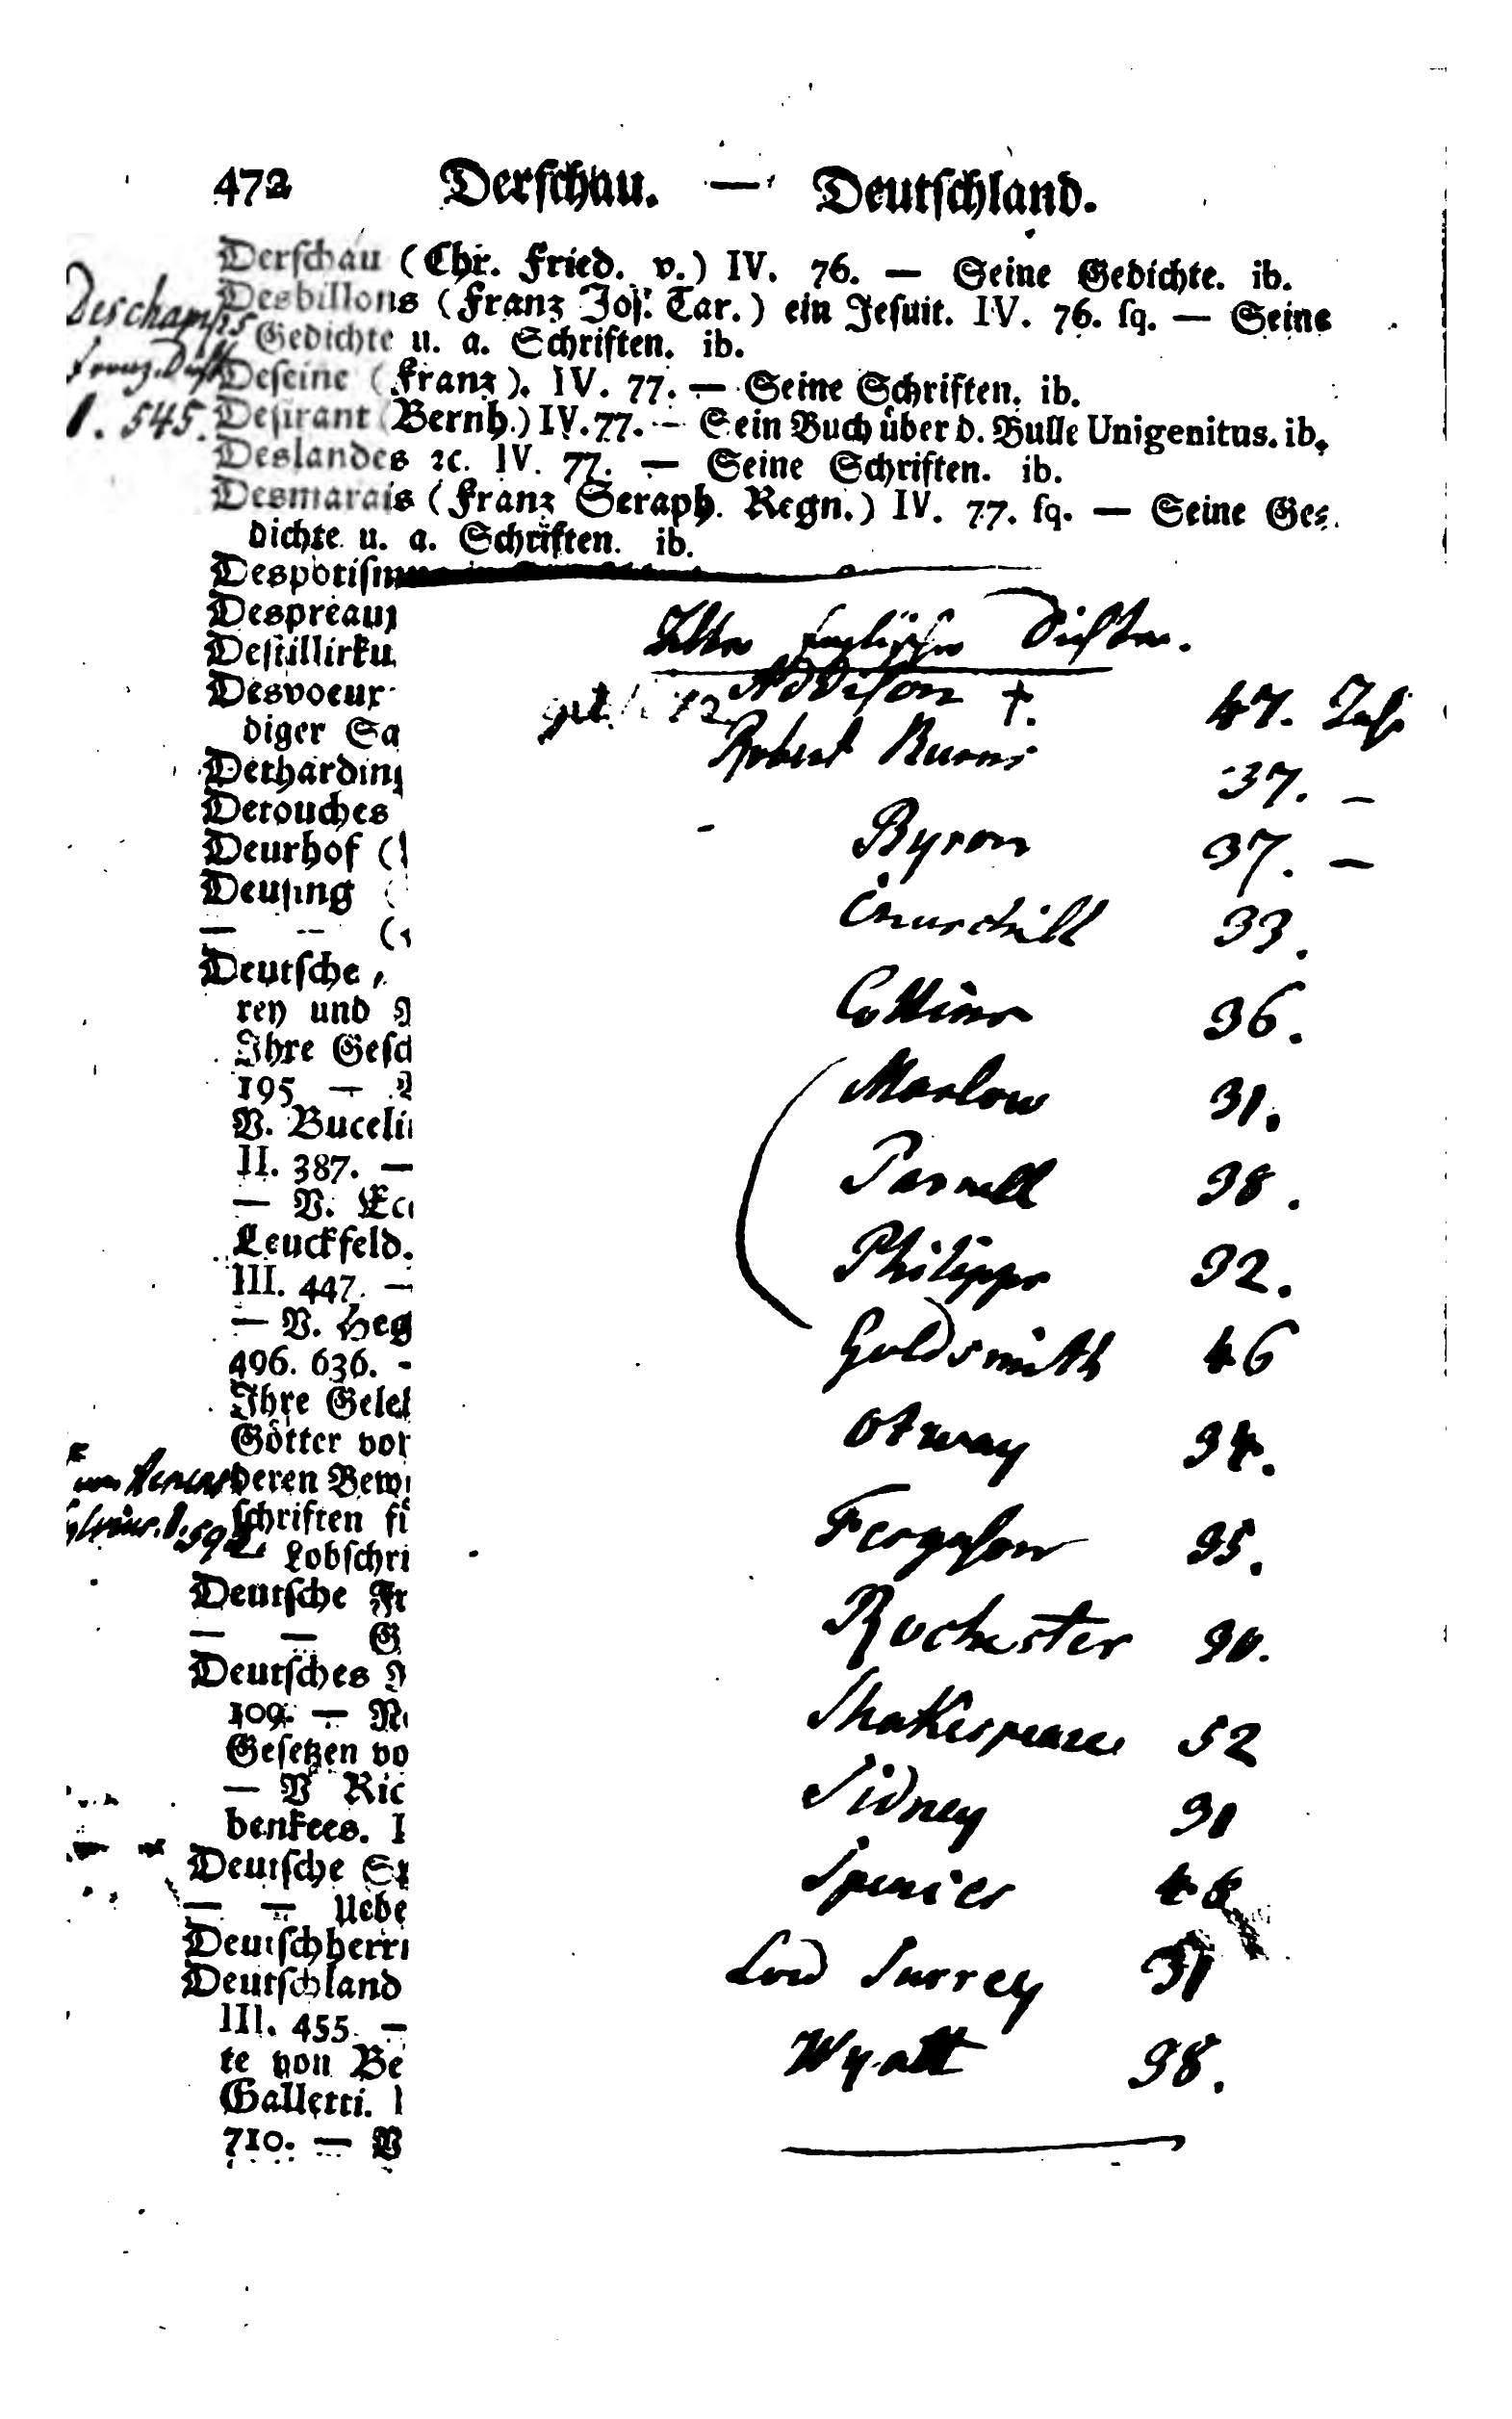 472 Derschau. — Deutschland.
Derschau (Chr. Fried. v.) IV. 76. — Seine Gedichte. ib.
Desbillons (Franz Jos. Tar.) ein Jesuit. IV. 76. sq. — Seine
Gedichte u. a. Schriften. ib.
Deseine (Franz). IV. 77. — Seine Schriften. ib.
Desirant (Bernh.) IV. 77. — Sein Buch über d. Bulle Unigenitus. ib.
Deslandes ꝛc. IV. 77. — Seine Schriften. ib.
Desmarais (Franz Seraph. Regn.) IV. 77. sq. — Seine Ge⸗
dichte u. a. Schriften. ib.
Deschamps
franz.
1. 545.
Despotism
Despreaux
Destillirku
Desvoeux
diger Sa
Detharding
Detouches
Deurhof (
Deusing (
— — (
Deutsche
ren und
Ihre Gesch
195 —
V. Bucelin
II. 387. —
— V. Ecc
Leuckfeld.
III. 447. —
— V. Heg
496. 636. -
Ihre Geleh
Götter vor
deren Bew
schriften fi
Lobschri
1. 592.
Deutsche Fr
— — G
Deutsches
109. — N
Gesetzen vo
— V Ric
benkees. I
Deutsche Sp
— — Uebe
Deutschherri
Deutschland
III. 455. —
te von Be
Galletti.
710. — V
Englische Dichter.
Addison †. 47. Jahr
Robert Burns 37. —
- Byron 37. —
Churchill 33.
Collins 36.
Marlow 31.
Parnell 38.
Philipps 32.
Goldsmith 46
Otway 34.
Ferguson 35.
Rochester 30.
Shakespeare 52
Sidney 31
Spenser 46
Lord Surrey 31
Wyatt 38.